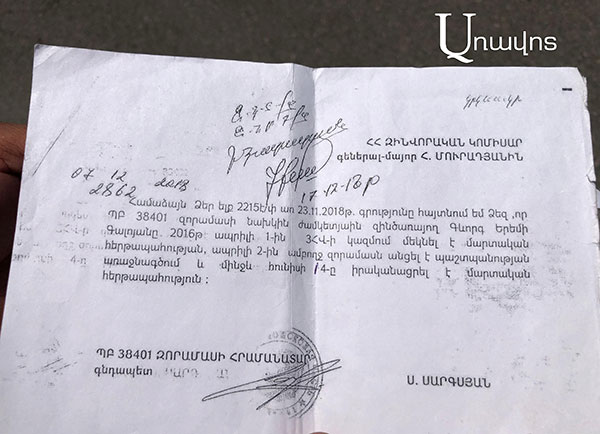 Առավոտ
կրկնակի
ՀՀ ԶԻՆՎՈՐԱԿԱՆ ԿՈՄԻՍԱՐ
գեներալ-մայոր Հ. ՄՈՒՐԱԴՅԱՆԻՆ
07 12 2018
2862
17-12-18թ
Համաձայն Ձեր ելք 2215Ե/փ առ 23.11.2018թ. գրությունը հայտնում եմ Ձեզ ,որ
ՊԲ 38401 զորամասի նախկին ժամկետային զինծառայող Գևորգ Երեմի
Գալոյանը 2016թ ապրիլի 1-ին 3ՀՎ-ի կազմում մեկնել է մարտական
հերթապահության, ապրիլի 2-ին ամբողջ զորամասն անցել է պաշտպանության
4-ը առաջնագծում և մինչև հունիսի 14-ը իրականացրել է մարտական
հերթապահություն :
ՊԲ 38401 ԶՈՐԱՄԱՍԻ ՀՐԱՄԱՆԱՏԱՐ
գնդապետ
Ս. ՍԱՐԳՍՅԱՆ